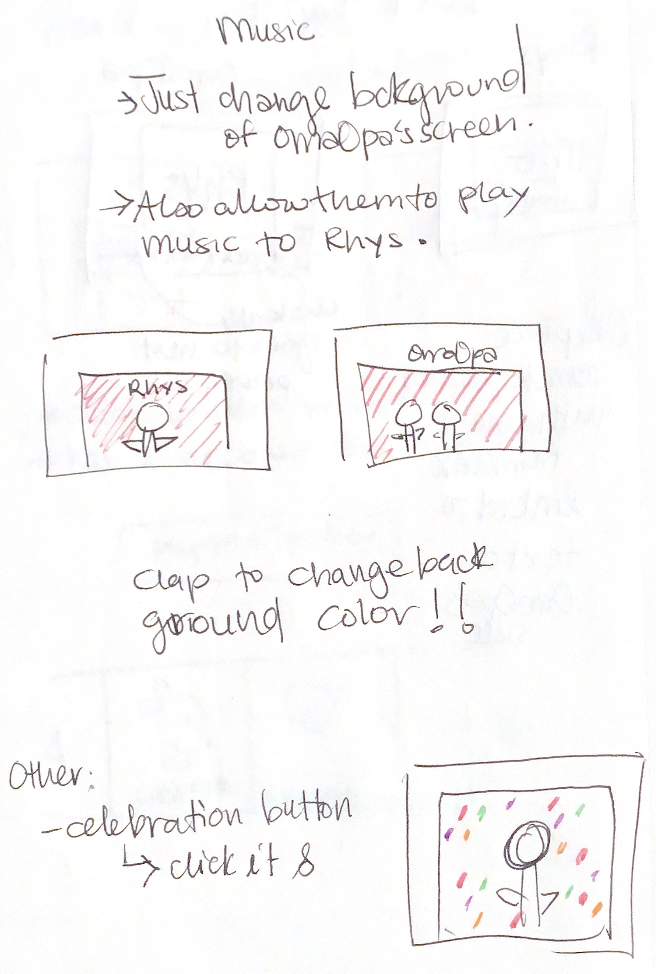 Music
→ Just change bckground
of OmaOpa's screen.
→ Also allow them to play
music to Rhys.
Rhys
OmaOpa
clap to change back
ground color!!
Other:
- celebration button
↳ click it &